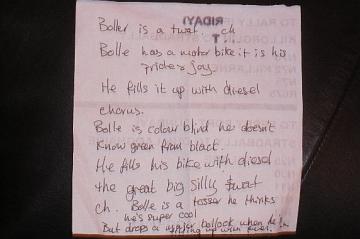 Boller is a twat ch
RIDAY!
Bolle has a motor bike it is his
pride & joy.
He fills it up with diesel
chorus.
Bolle is colour blind he doesn't
know green from black.
He fills his bike with diesel
the great big silly twat
ch. Bolle is a tosser he thinks
he's super cool
But drops a major bollock when he's
filling up with fuel.